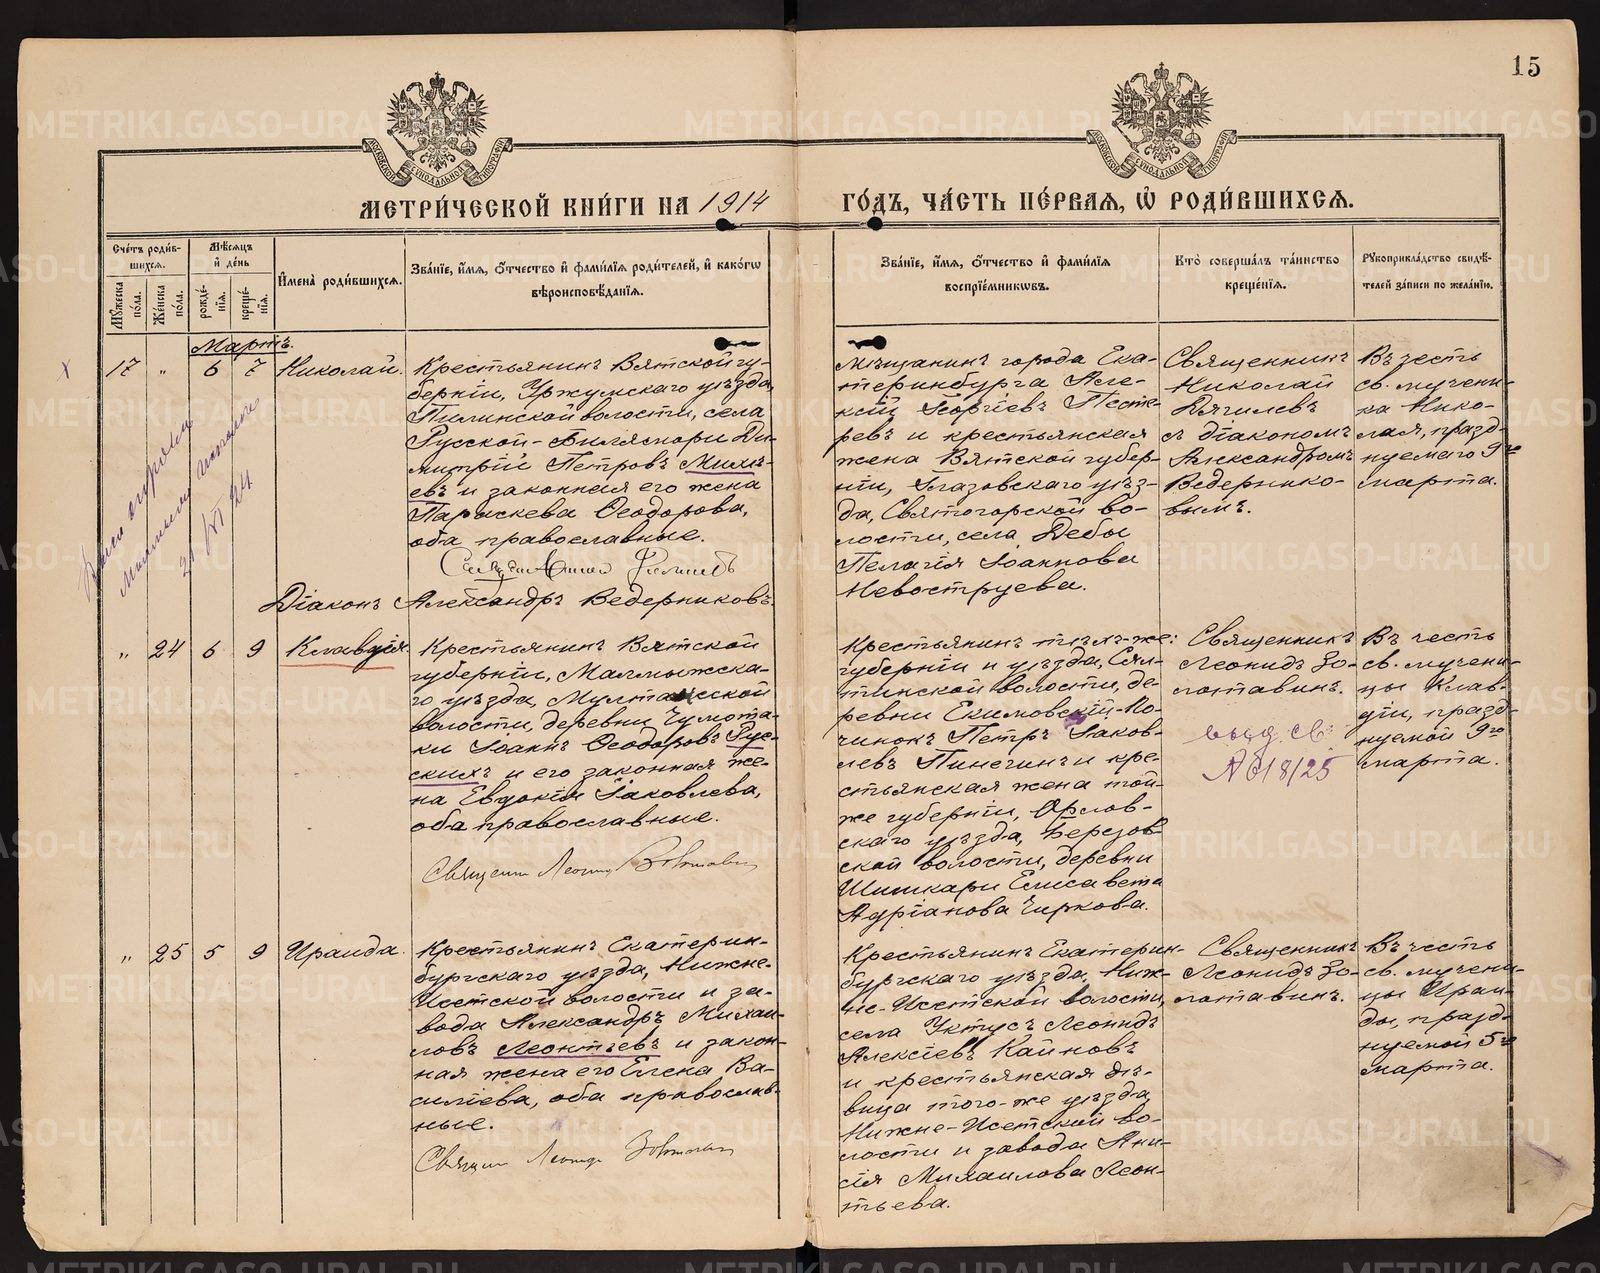 15
МЕТРИ́ЧЕСКОЙ КНИ́ГИ НА 1914 ГО́ДЪ, ЧА́СТЬ ПЕ́РВАѦ, Ѡ҆ РОДИ́ВШИХСѦ.
Сче́тъ роди́в-
шихсѧ.
Мѣ́сѧцъ
и҆ де́нь
Мꙋ́жеска
по́ла.
Же́нска
по́ла.
рожде́-
нїѧ.
креще́-
нїѧ.
И҆мена̀ роди́вшихсѧ.
Зва́нїе, и҆́мѧ, ѻ҆́тчество и҆ фами́лїѧ роди́телей, и҆ како́гѡ
вѣроисповѣ́данїѧ.
Зва́нїе, и҆́мѧ, ѻ҆́тчество и҆ фами́лїѧ
воспрїе́мникѡвъ.
Кто̀ соверша́лъ та́инство
креще́нїѧ.
Рꙋкоприкла́дство свидѣ́-
телей за́писи по жела́нїю.
Мартъ.
17 " 6 7 Николай.
Крестьянинъ Вятской гу-
берніи, Уржумскаго уѣзда,
Пилинской волости, села
Русской-Билямори Ди-
митрій Петровъ Михѣ-
евъ и законная его жена
Параскева Ѳеодорова,
оба православные.
Діаконъ Александръ Ведерниковъ.
Мѣщанинъ города Ека-
теринбурга Але-
ксій Георгіевъ Песте-
ревъ и крестьянская
жена Вятской губер-
ніи, Глазовскаго уѣз-
да, Святогорской во-
лости, села Дебы
Пелагія Іоаннова
Невоструева.
Священникъ
Николай
Дягилевъ
съ діакономъ
Александромъ
Ведернико-
вымъ.
Въ честь
св. мучени-
ка Нико-
лая, празд-
нуемаго 9го
марта.
" 24 6 9 Клавдія.
Крестьянинъ Вятской
губерніи, Малмыжска-
го уѣзда, Мултанской
волости, деревни Чумота-
ки Іоаннъ Ѳеодоровъ Рус-
скихъ и его законная же-
на Евдокія Іаковлева,
оба православные.
Священ Леонид Золотавин
Крестьянинъ тѣхъ-же:
губерніи и уѣзда, Сял-
тинской волости, де-
ревни Екимовскій-По-
чинокъ Петръ Іаков-
левъ Пинегинъ и кре-
стьянская жена той-
же губерніи, Орлов-
скаго уѣзда, Березов-
ской волости, деревни
Шишкари Елисавета
Адріанова Чиркова.
Священникъ
Леонидъ Зо-
лотавинъ.
выд. св.
№ 618/25
Въ честь
св. мучени-
цы Клав-
діи, празд-
нуемой 9го
марта.
" 25 5 9 Ираида.
Крестьянинъ Екатерин-
бургскаго уѣзда, Нижне-
Исетской волости и за-
вода Александръ Михаи-
ловъ Леонтьевъ и закон-
ная жена его Елена Ва-
силіева, оба православ-
ные.
Священ Леонид Золотавин
Крестьянинъ Екатерин-
бургскаго уѣзда, Ниж-
не-Исетской волости,
села Уктусъ Леонидъ
Алексіевъ Каиновъ
и крестьянская дѣ-
вица того-же уѣзда,
Нижне-Исетской во-
лости и завода Ани-
сія Михаилова Леон-
тьева.
Священникъ
Леонидъ Зо-
лотавинъ.
Въ честь
св. мучени-
цы Ираи-
ды, празд-
нуемой 5го
марта.